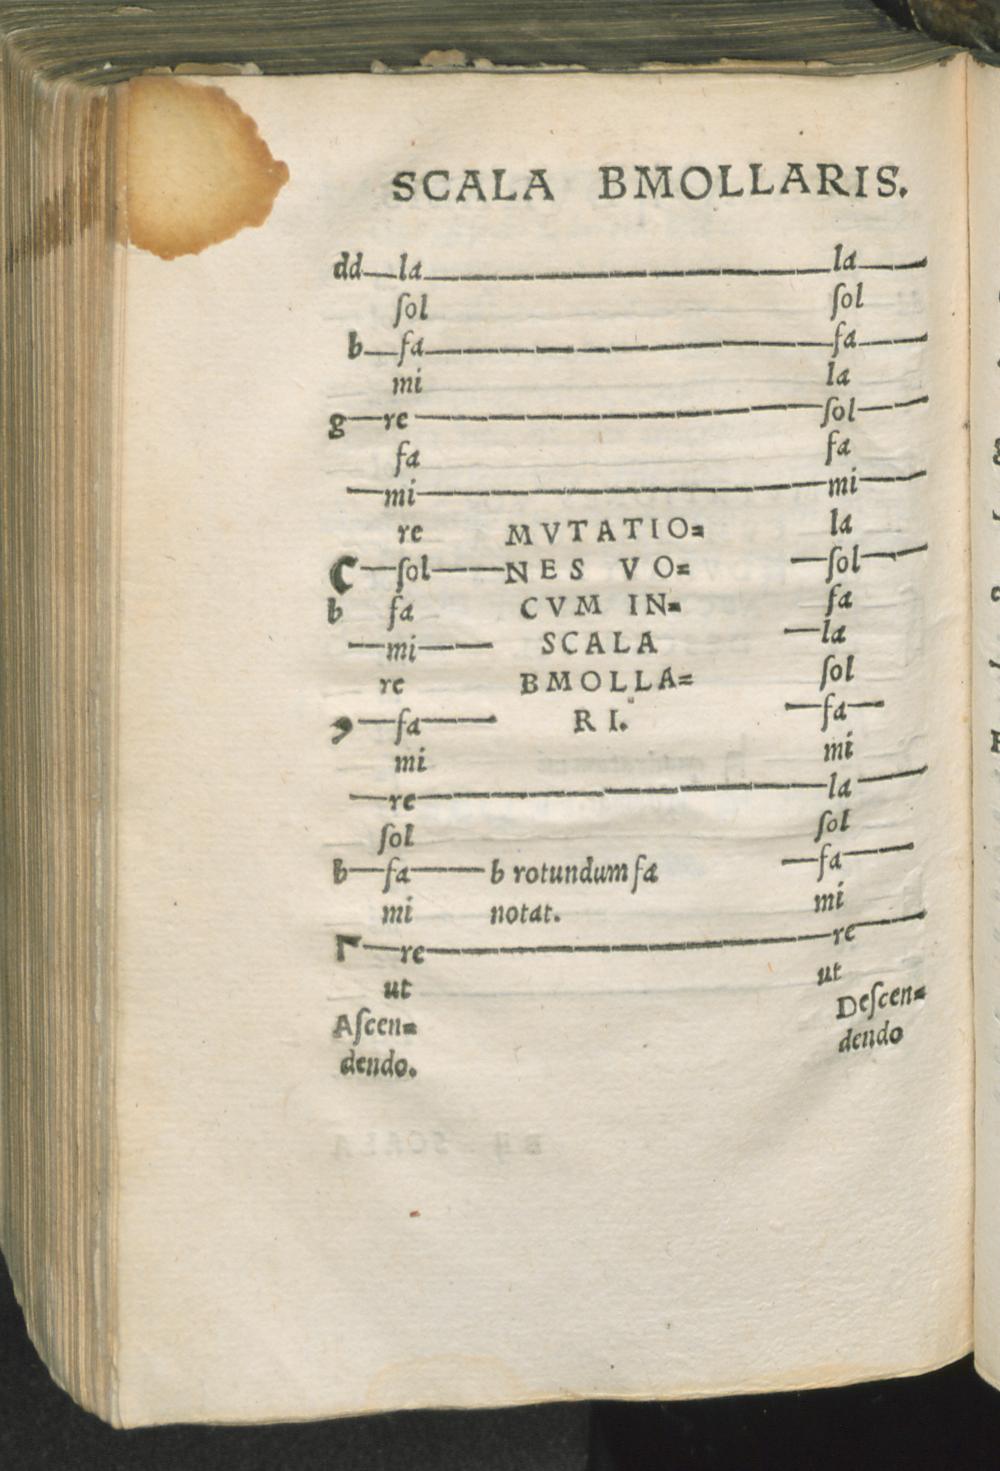 SCALA BMOLLARIS.
dd la la
ſol ſol
b fa fa
mi la
g re ſol
fa fa
mi mi
re MVTATIO= la
C ſol NES VO= ſol
b fa CVM IN= fa
mi SCALA la
re BMOLLA= ſol
fa RI. fa
mi mi
re la
ſol ſol
b fa b rotundum fa fa
mi notat. mi
Γ re re
ut ut
Aſcen= Deſcen=
dendo. dendo